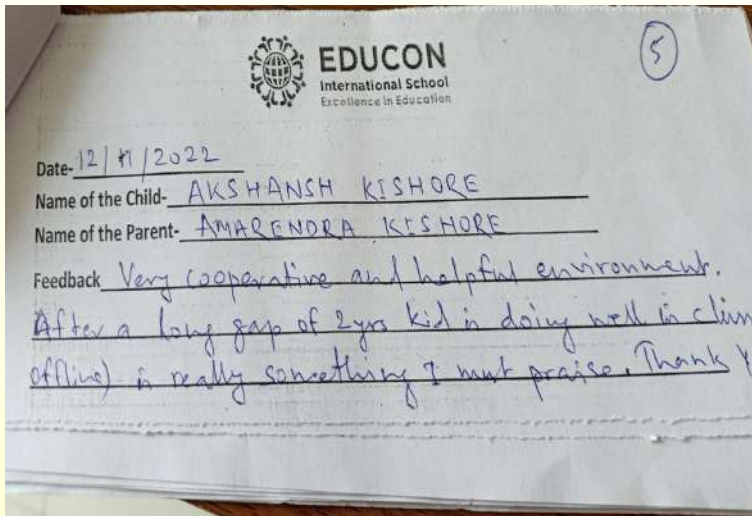 EDUCON
International School
Excellence in Education
5
Date- 12/11/2022
Name of the Child- AKSHANSH KISHORE
Name of the Parent- AMARENDRA KISHORE
Feedback Very cooperative and helpful environment.
After a long gap of 2yrs kid is doing well in
offline) is really something I must praise. Thank